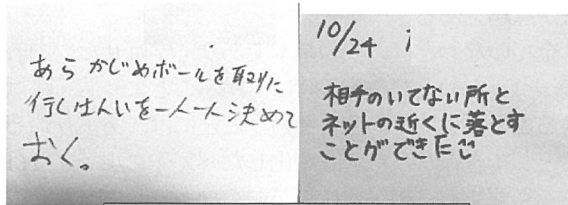 あらかじめボールを取りに
行くはんいを一人一人決めて
おく。
10/24 i
相手のいてない所と
ネットの近くに落とす
ことができた